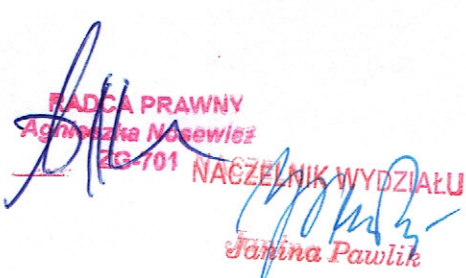 RADCA PRAWNY
Agnieszka Nosewicz
ZG-701
NACZELNIK WYDZIAŁU
Janina Pawlik